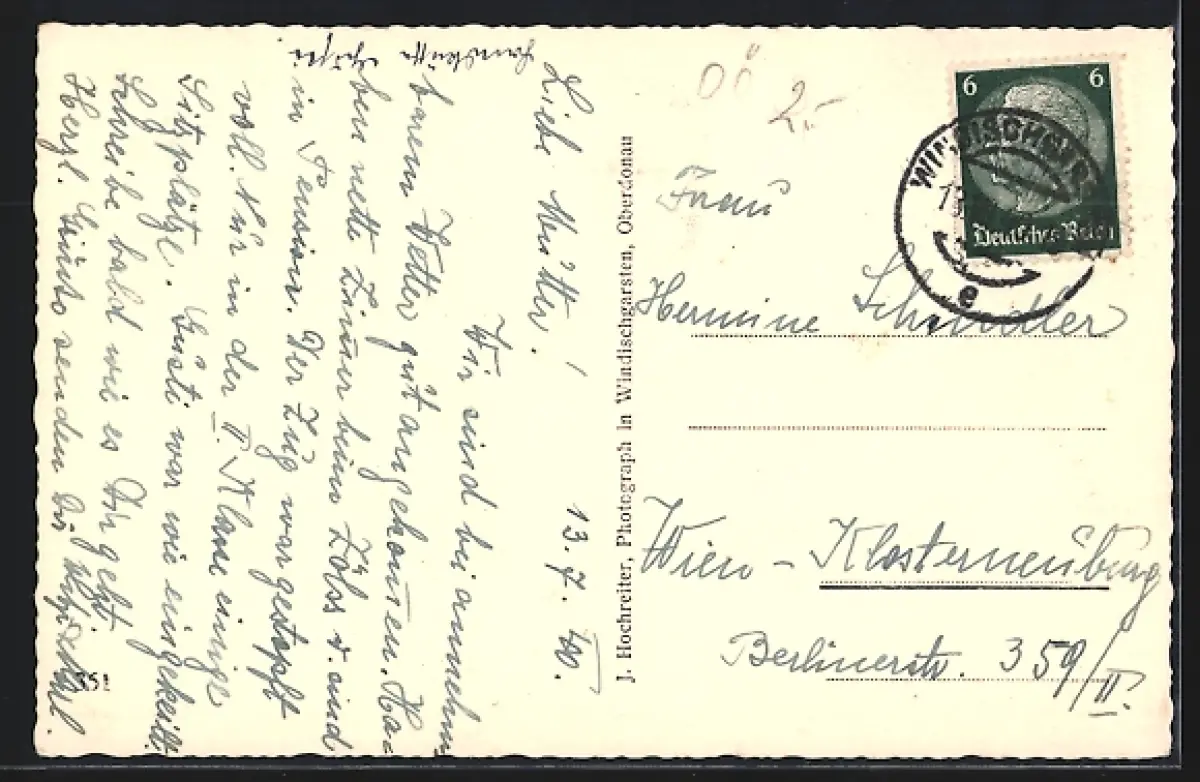 Liebe Mutter!
13. 7. 40.
Wir sind bei annehm
barem Wetter gut angekommen. Ha-
ben nette Zimmer beim Zöls u. sind
in Pension. Der Zug war gestopft
voll. Nur in der II. Klasse einige
Sitzplätze. Gusti war wie eingekeilt.
Schreibe bald wie es Dir geht
Herzl. Grüsse senden Dir
351
J. Hochreiter, Photograph in Windischgarsten, Oberdonau
OÖ
2.-
6 6
Deutsches Reich
WINDISCHGARS
e
Frau
Hermine Schindler
Wien - Klosterneuburg
Berlinerstr. 359/II.